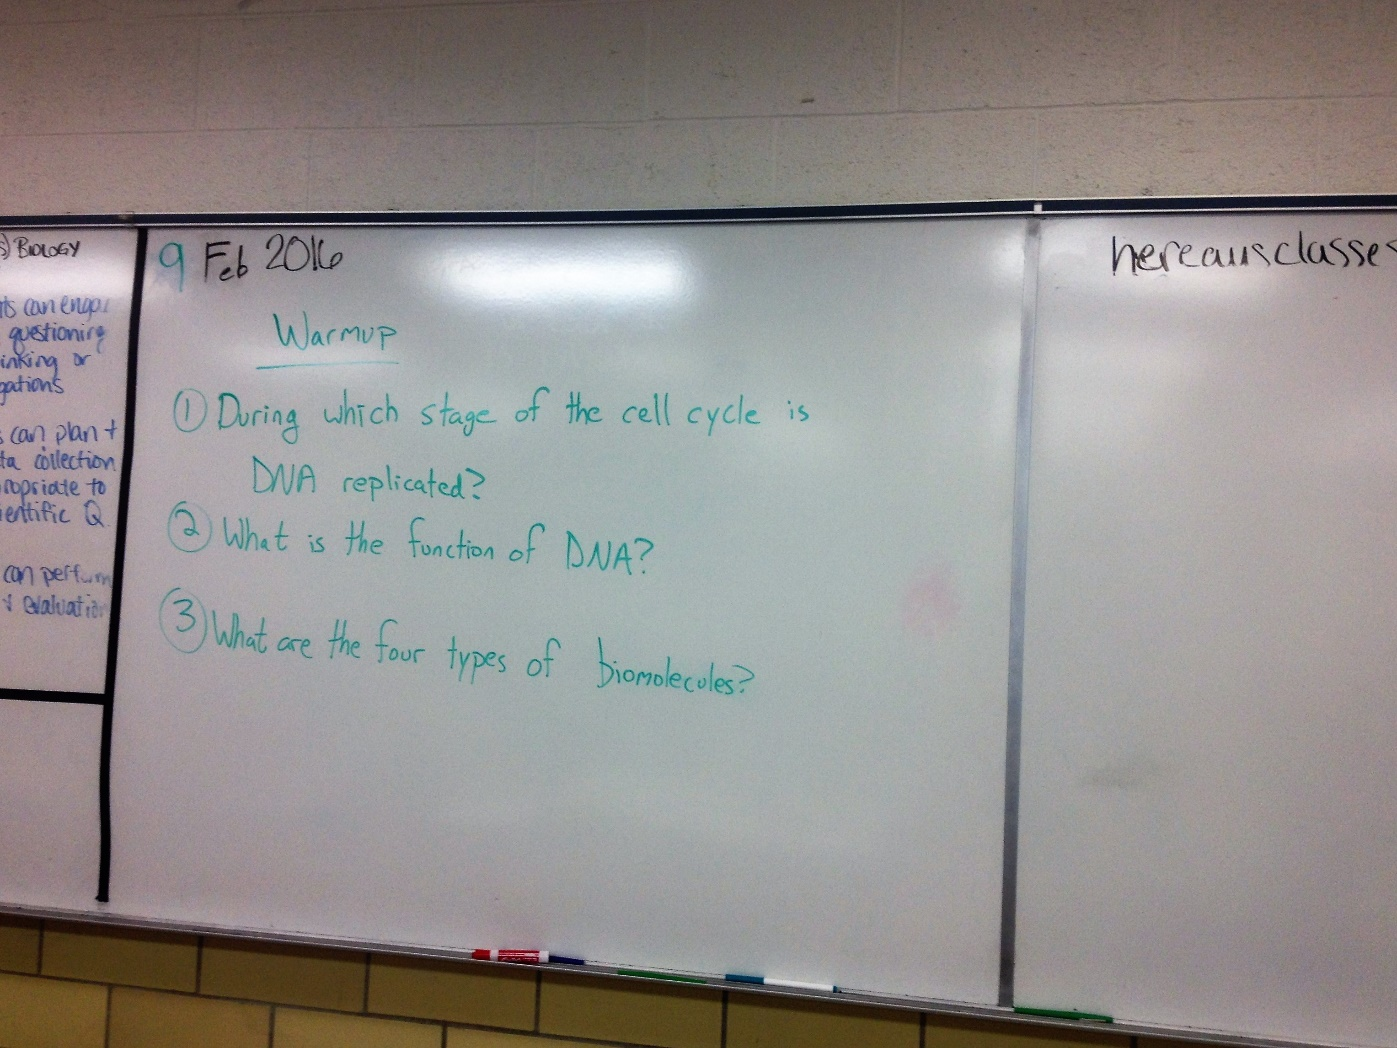 BIOLOGY
can enga
questioning
inking or
gations
can plan +
ta collection
ropriate to
entific Q
can perform
evaluation
9 Feb 2016
Warmup
① During which stage of the cell cycle is
DNA replicated?
② What is the function of DNA?
③ What are the four types of biomolecules?
hereausclasses